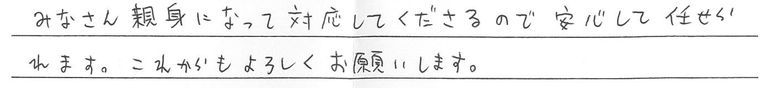 みなさん親身になって対応してくださるので安心して任せら
れます。これからもよろしくお願いします。